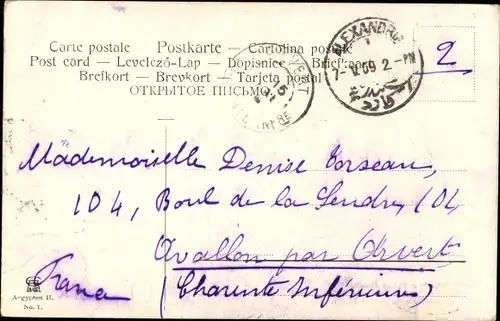 Carte postale Postkarte - Cartolina postale
Post card - Levelező-Lap - Dopisnice - Briefkaart
Brefkort - Brevkort - Tarjeta postal
ОТКРЫТОЕ ПИСЬМО
ALEXANDRIE
7-V 09 2-PM
2
Mademoiselle Denise
104, Boul de la 104
Avallon par Arvert
(Charente Inférieure)
France
Aegypten II.
No. 1.